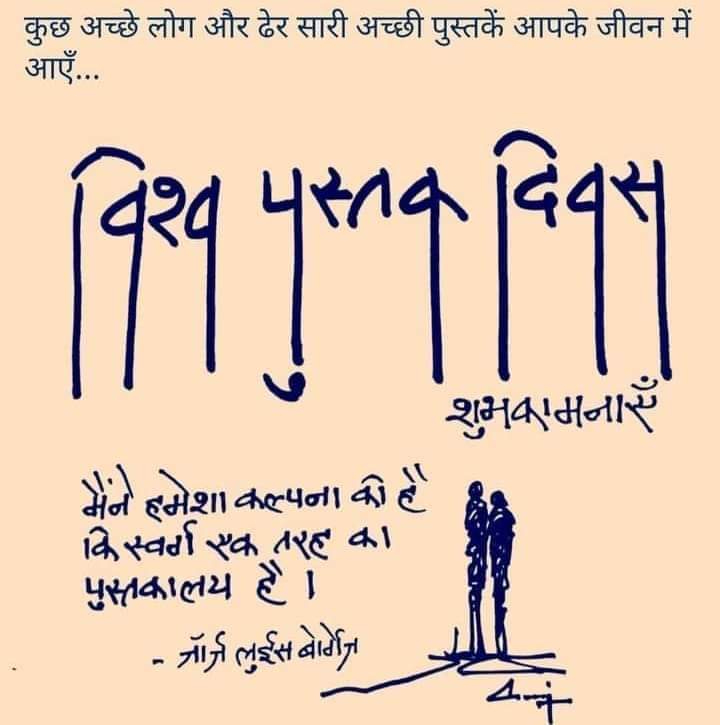 कुछ अच्छे लोग और ढेर सारी अच्छी पुस्तकें आपके जीवन में
आएँ...
विश्व पुस्तक दिवस
शुभकामनाएँ
मैंने हमेशा कल्पना की है
कि स्वर्ग एक तरह का
पुस्तकालय है ।
- जॉर्ज लुईस बोर्गेज